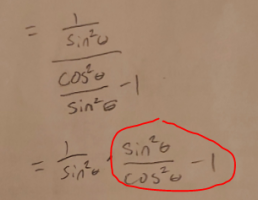 = 1/sin²θ
cos²θ/sin²θ - 1
= 1/sin²θ · sin²θ/cos²θ - 1